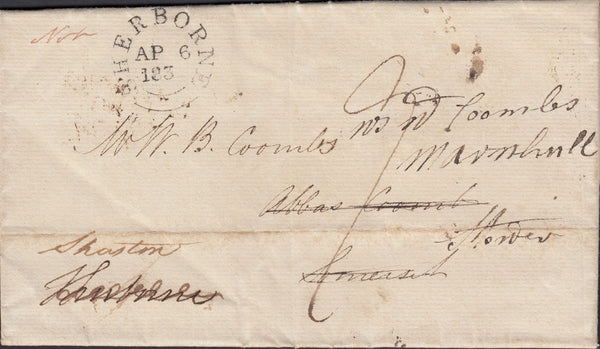 Not
SHERBORNE
AP 6
183
Mr W. B. Coombs
Coombs
Marnhull
Abbas Coomb
Somerset
Shaston
Sherborne